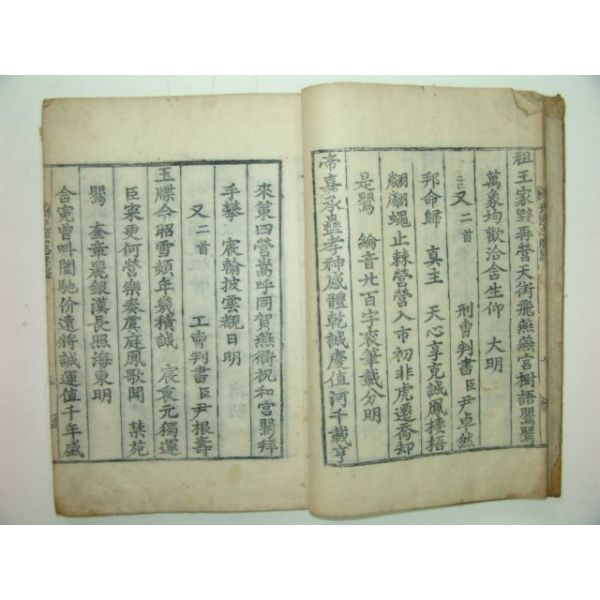 祖王家雙再營天街飛燕燕宮樹語鸎鸎
萬象均歡洽含生仰　大明
又二首　刑曹判書臣尹卓然
邦命歸　真主　天心享克誠鳳棲梧
翩翩蠅止棘營營入市初非虎遷喬却
是鸎　綸音廿百字袞筆載分明
帝嘉承盡孝神感體乾誠慶值河千載亨
來第四營嵩呼同賀燕衢祝和宮鸎拜
手攀　宸翰披雲覩日明
又二首　工曹判書臣尹根壽
玉牒今昭雪頻年幾積誠　宸衷元獨運
臣寀更何營樂奏虞庭鳳歌聞　禁苑
鸎　奎章麗銀漢長照海東明
含寃曾呌闔馳价遠將誠運值千年盛